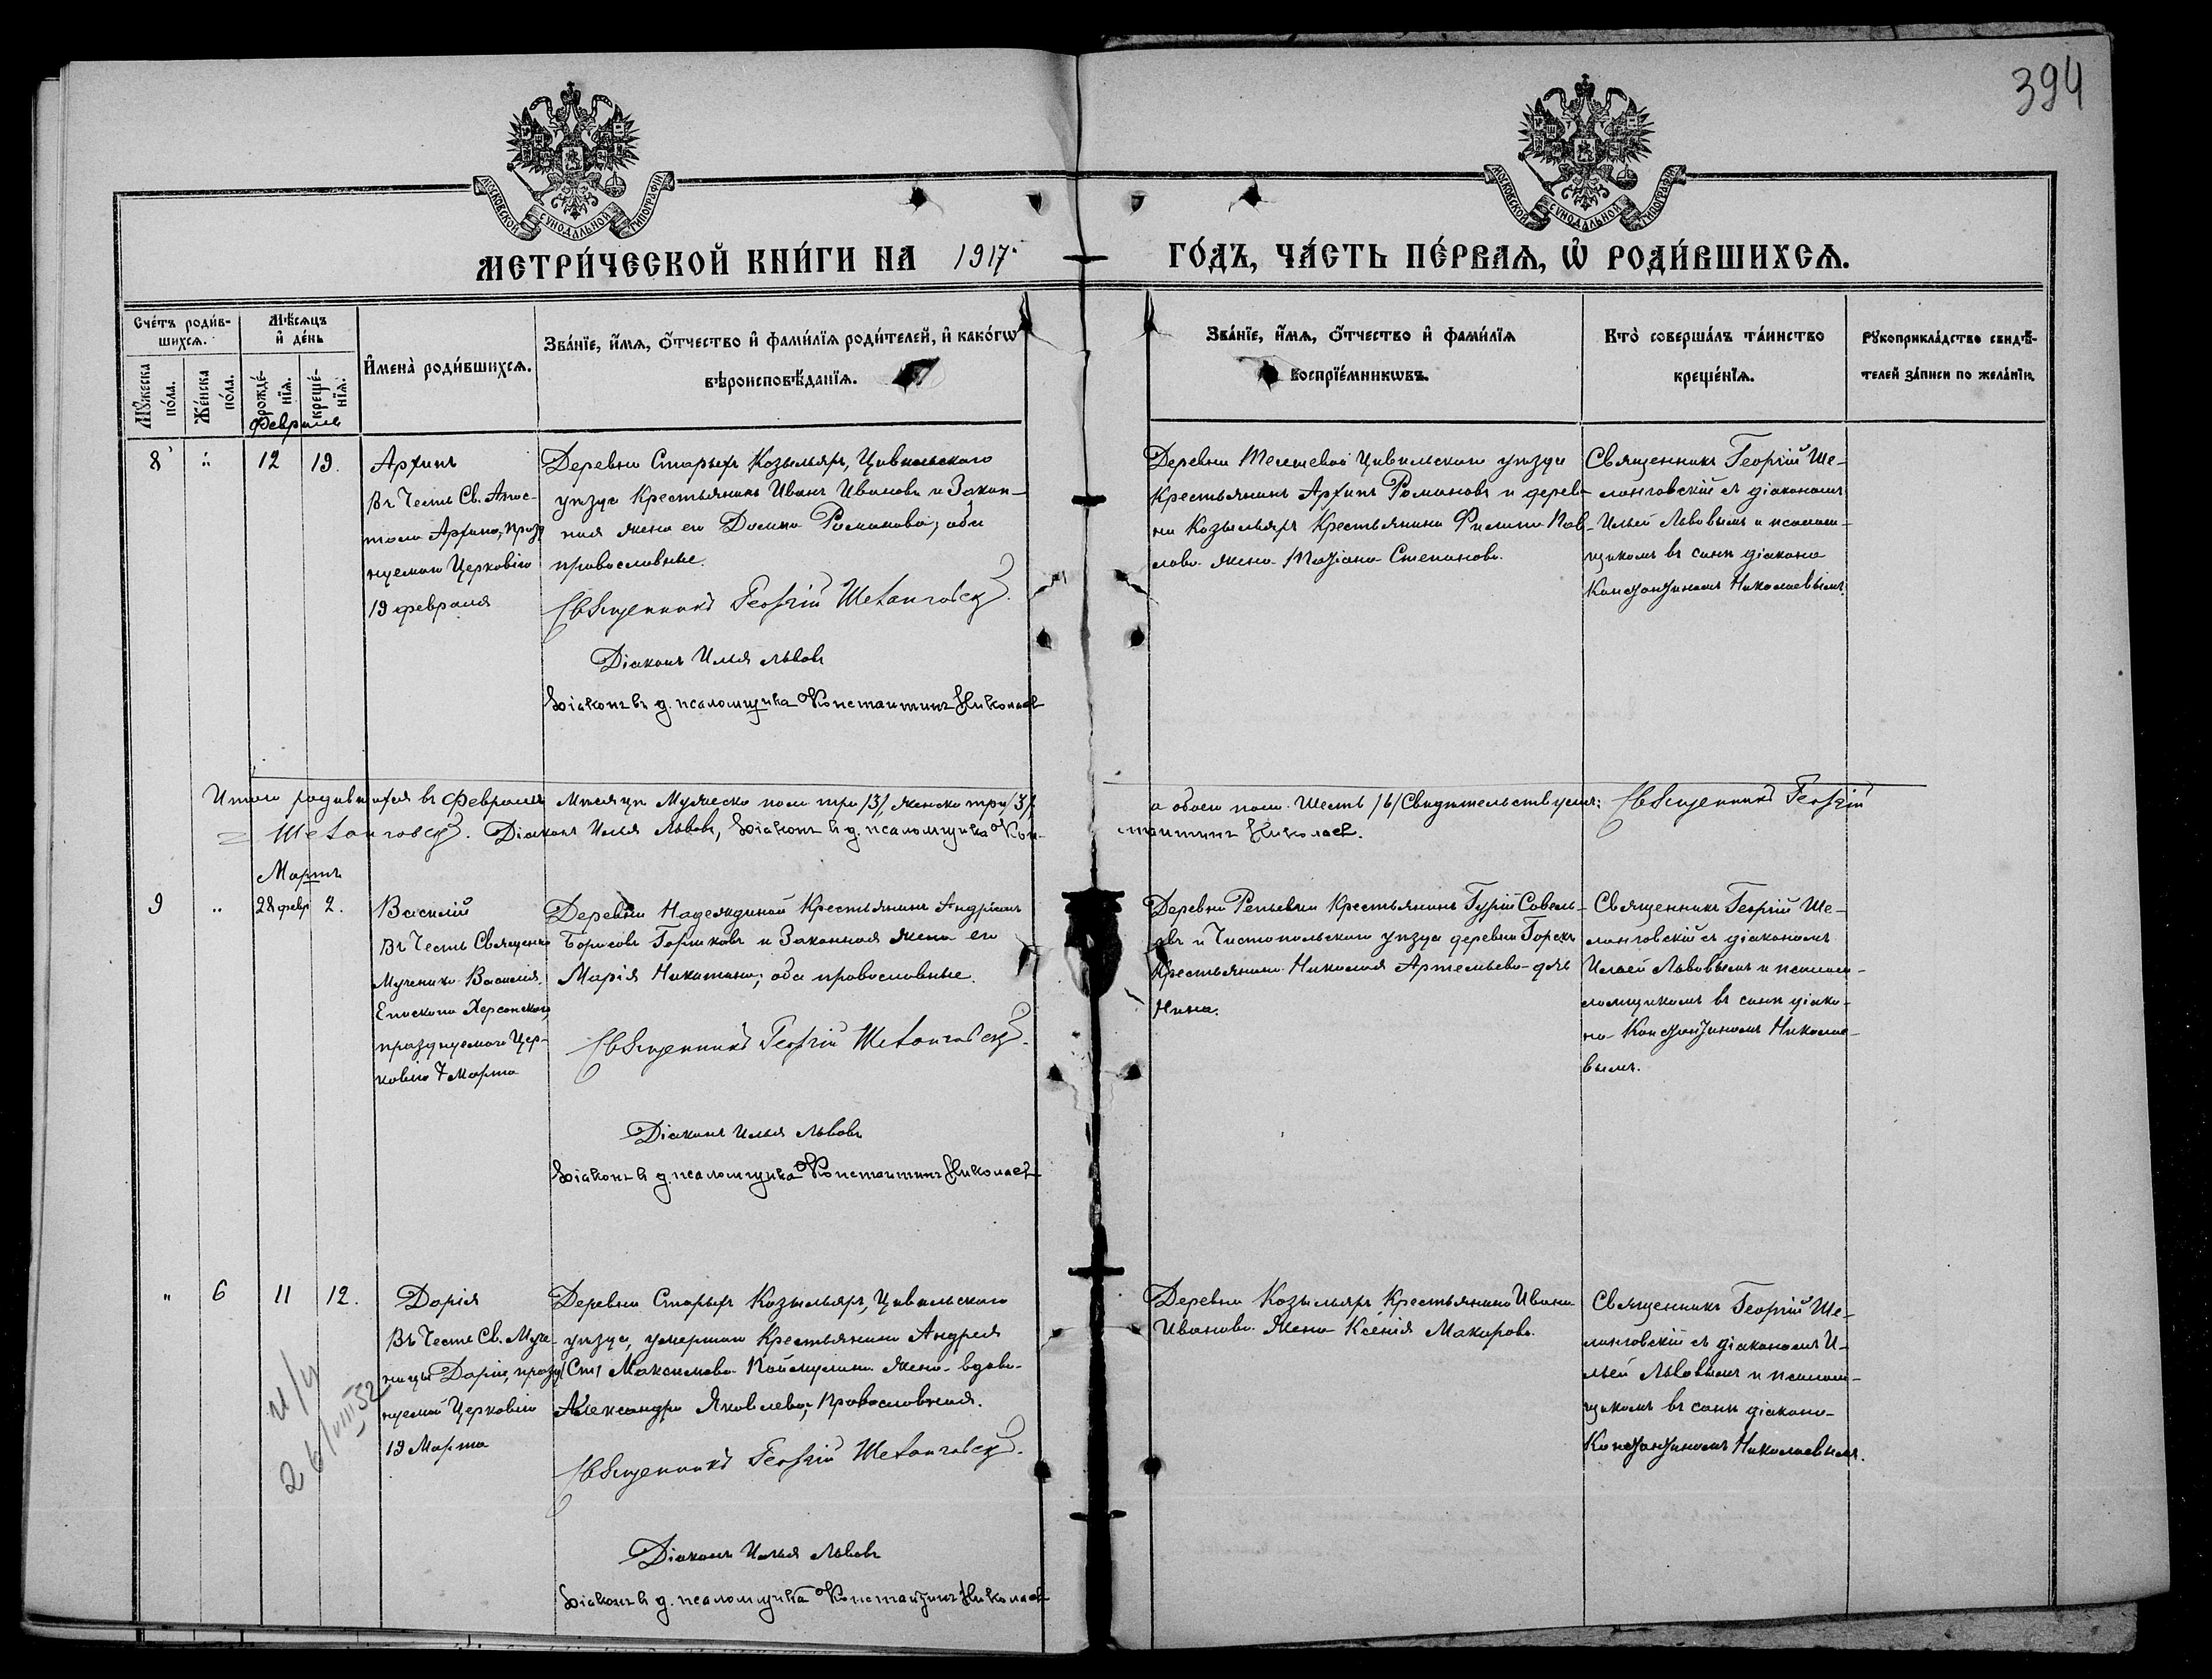 394
МОСКОВСКОЙ СУНОДАЛЬНОЙ ТИПОГРАФІИ
МОСКОВСКОЙ СУНОДАЛЬНОЙ ТИПОГРАФІИ
МЕТРИ́ЧЕСКОЙ КНИ́ГИ НА 1917 ГО́ДЪ, ЧА́СТЬ ПЕ́РВАѦ, Ѡ҆ РОДИ́ВШИХСѦ.
Сче́тъ роди́в-
шихсѧ.
Мѣ́сѧцъ
и҆ де́нь
Мꙋ́жеска по́ла.
Же́нска по́ла.
рожде́-
нїѧ.
креще́-
нїѧ.
И҆мена̀ роди́вшихсѧ.
Зва́нїе, и҆́мѧ, ѻ҆́тчество и҆ фами́лїѧ роди́телей, и҆ како́гѡ
вѣроисповѣ́данїѧ.
Зва́нїе, и҆́мѧ, ѻ҆́тчество и҆ фами́лїѧ
воспрїе́мникѡвъ.
Кто̀ соверша́лъ та́инство
креще́нїѧ.
Рꙋкоприкла́дство свидѣ́-
телей за́писи по жела́нїю.
Февраль
8 " 12 19.
Архипъ
Въ Честь Св. Апос-
тола Архипа, праzд
нуемаго Церковію
19 февраля
Деревни Старыхъ Козыльяръ, Цивильскаго
уѣзда Крестьянинъ Иванъ Ивановъ и Закон-
ная жена его Домна Романова; оба
православные.
Священникъ Георгій Шеланговскій.
Діаконъ Илья Львовъ
Діаконъ въ д. псаломщика Константинъ Николаев
Деревни Цивильскаго уѣзда
Крестьянинъ Архипъ Романовъ и дерев-
ни Козыльяръ Крестьянина Филипа Пав-
лова жена Татіана Степанова.
Священникъ Георгій Ше-
ланговскій съ діакономъ
Ильей Львовымъ и псалом-
щикомъ въ санѣ діакона
Константиномъ Николаевымъ.
Итого родившихся въ Февралѣ Мѣсяцѣ Мужеска пола три /3/, женска три /3/,
а обоего пола шесть /6/ Свидѣтельствуемъ: Священникъ Георгій
Шеланговскій. Діаконъ Илья Львовъ, Діаконъ в д. псаломщика Кон-
стантинъ Николаев.
Мартъ
9 " 28 февр 2.
Василій
Въ Честь Священно
Мученика Василія,
Епископа Херсонскаго,
празднуемаго Цер-
ковію 7 Марта
Деревни Надеждиной Крестьянинъ Андріанъ
Борисовъ Горшковъ и Законная жена его
Марія Никитина; оба православные.
Священникъ Георгій Шеланговскій.
Діаконъ Илья Львовъ
Діаконъ в д. псаломщика Константинъ Николаев
Деревни Репьевки Крестьянинъ Гурій Савель-
евъ и Чистопольскаго уѣзда деревни
Крестьянина Николая Артемьева дочь
Нина.
Священникъ Георгій Ше-
ланговскій съ діакономъ
Ильей Львовымъ и псалом-
ломщикомъ въ санѣ діако-
на Константиномъ Николае-
вымъ.
" 6 11 12.
Дарія
Въ Честь Св. Муче-
ницы Даріи, празд
нуемой Церковію
19 Марта
Деревни Старыхъ Козыльяръ, Цивильскаго
уѣзда, умершаго Крестьянина Андрея
Максимова жена вдова
Александра Яковлева, Православная.
Священникъ Георгій Шеланговскій.
Діаконъ Илья Львовъ
Діаконъ в д. псаломщика Константинъ Николаев
Деревни Козыльяръ Крестьянина Ивана
Иванова Жена Ксенія Макарова.
Священникъ Георгій Ше-
ланговскій съ діакономъ И-
льей Львовымъ и псалом-
щикомъ въ санѣ діакона
Константиномъ Николаевымъ.
26/VIII 52